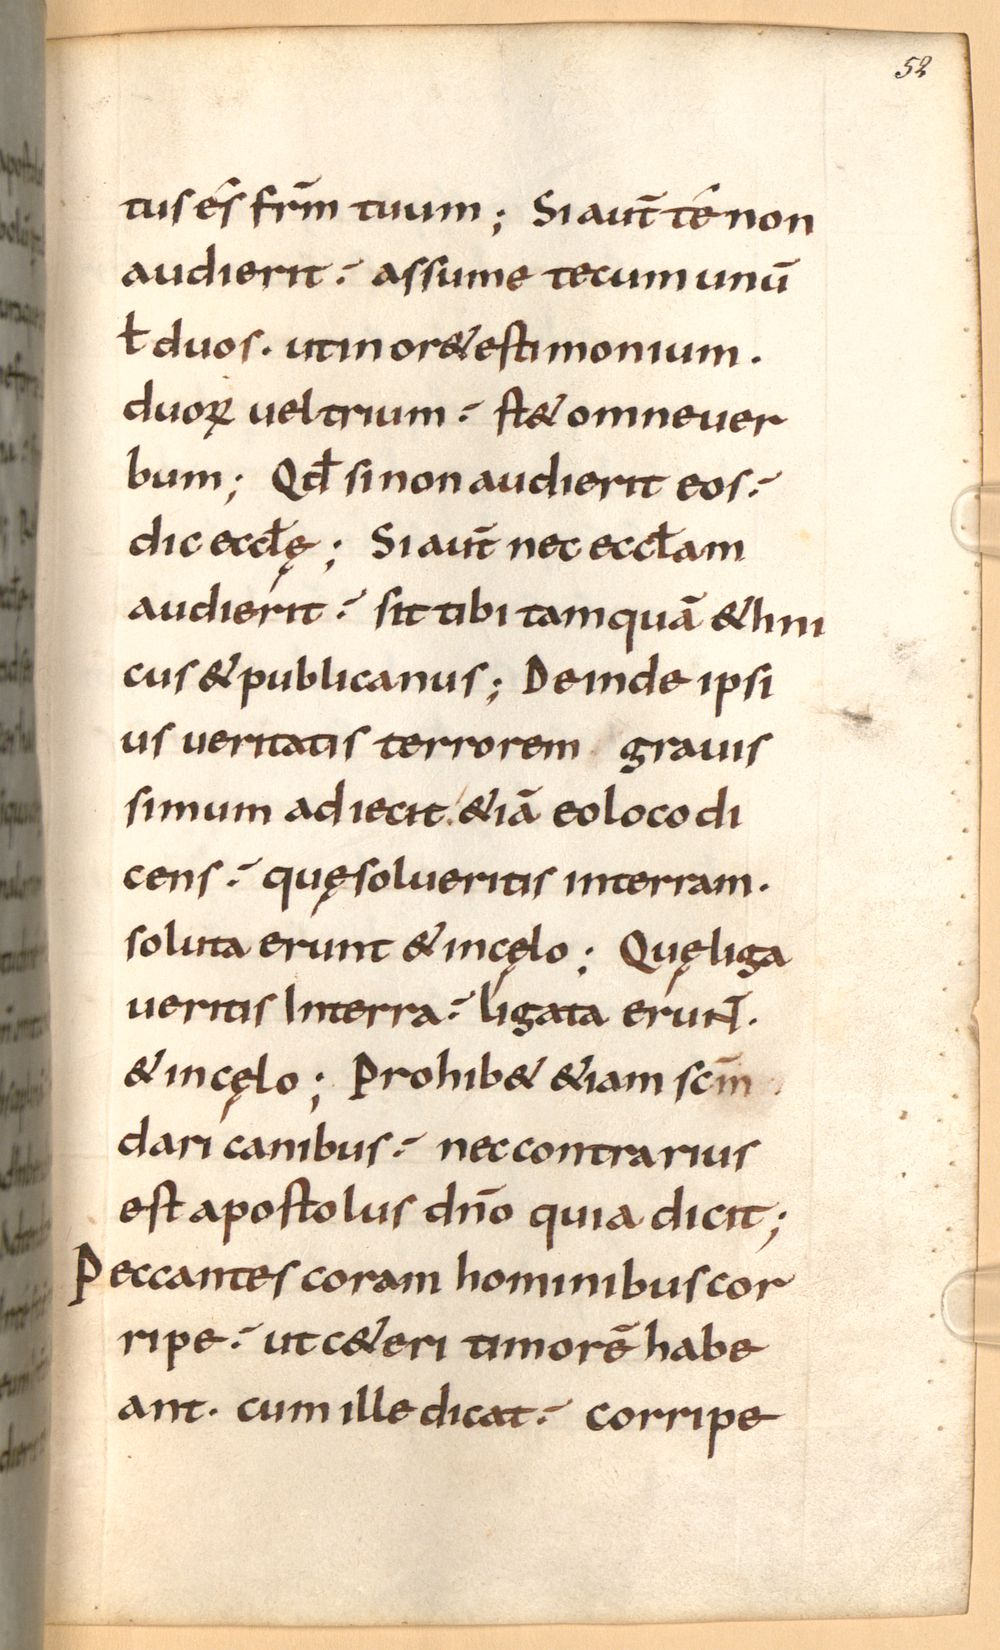 52
tus és fr̄m tuum; Si aut̄ té non
audierit: assume tecum unū
ł duos. ut in or&estimonium.
duoꝝ vel trium: st& omne uer
bum; Qđ si non audierit eos:
dic eccłę; Si aut̄ nec eccłam
audierit: sit tibi tamquā &hni
cus & publicanus; Deinde ipsi
us veritatis terrorem grauis
simum adiecit. &iā eo loco di
cens: quę solueritis in terram.
soluta erunt & in cęlo; Quę liga
ueritis In terra: ligata erun̄t.
& in cęlo; Prohib& &iam sc̄m
dari canibus: nec contrarius
est apostolus dn̄o quia dicit;
Peccantes coram hominibus cor
ripe: ut c&eri timorē habe
ant. cum ille dicat: corripe